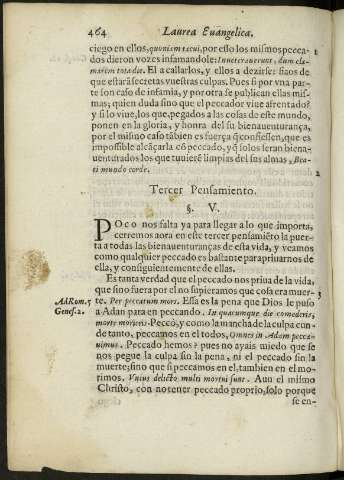 464 Laurea Euangelica.
ciego en ellos, quoniam tacui, por esso los mismos pecca-
dos dieron vozes infamandole: Inueterauerunt, dum cla-
marem tota die. El a callarlos, y ellos a dezirse: siaos de
que estará secretas vuestras culpas. Pues si por vna par-
te son caso de infamia, y por otra se publican ellas mis-
mas; quien duda sino que el peccador viue afrentado?
y si lo viue, los que, pegados a las cosas de este mundo,
ponen en la gloria, y honra del su bienauenturança,
por el mismo caso tābien es fuerça q̄ confiessen, que es
impossible alcāçarla cō peccado, y q̄ solos seran bien a-
uenturados los que tuuierē limpias del sus almas, Bea-
ti mundo corde.
Tercer Pensamiento.
§. V.
POco nos falta ya para llegar a lo que importa,
cerremos aora en este tercer pensamiēto la puer-
ta a todas las bienauenturanças de esta vida, y veamos
como qualquier peccado es bastante para priuarnos de
ella, y consiguientemente de ellas.
Es tanta verdad que el peccado nos priua de la vida,
que sino fuera por el no supieramos que cosa era muer-
Ad Rom. 5 te. Per peccatum mors. Essa es la pena que Dios le puso
Genes. 2. a Adan para en peccando. In quacumque die comederis,
morte morieris. Peccó, y como la mancha de la culpa cun-
de tanto, peccamos en el todos, Omnes in Adam pecca-
uimus. Peccado hemos? pues no ayais miedo que se
nos pegue la culpa sin la pena, ni el peccado sin la
muerte; sino que si peccamos en el, tambien en el mo-
rimos. Vnius delicto multi mortui sunt. Aun el mismo
Christo, con no tener peccado proprio, solo porque
se en-